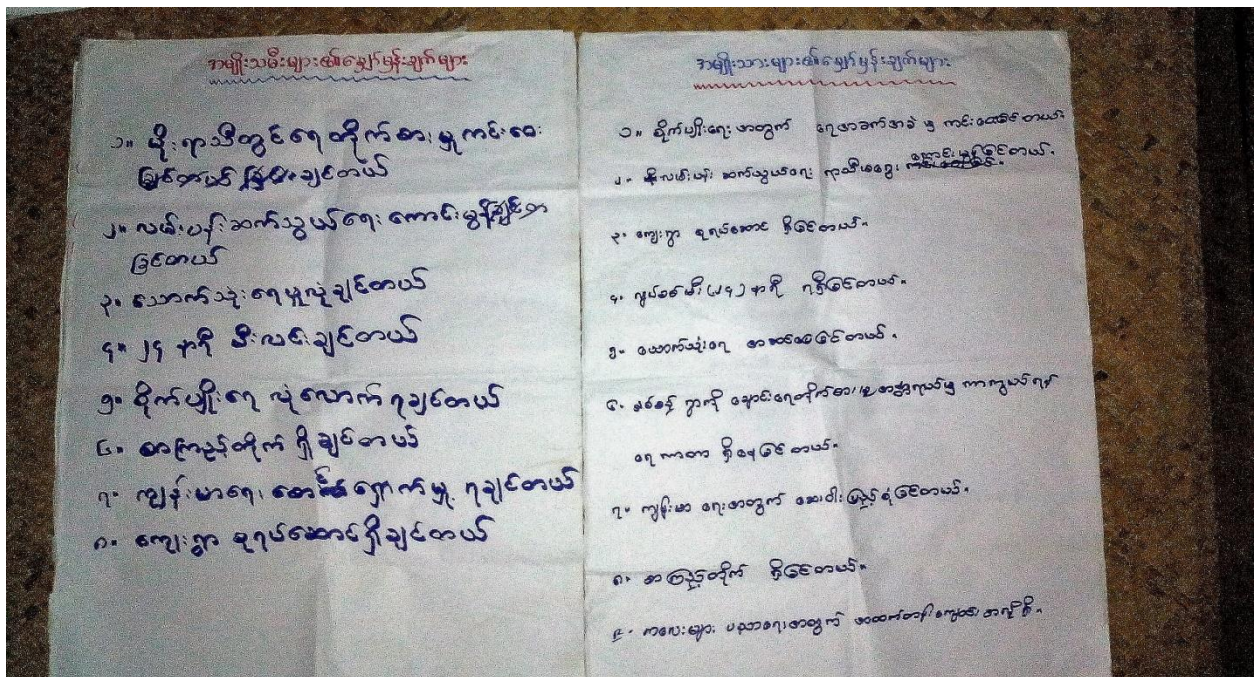 အမျိုးသမီးများ၏မျှော်မှန်းချက်များ
၁။ မိုးရာသီတွင်ရေတိုက်စားမှုကင်းဝေး
ချင်တယ်
၂။ လမ်းပန်းဆက်သွယ်ရေးကောင်းမွန်
ခြင်တယ်
၃။ သောက်သုံးရေဖူလုံချင်တယ်
၄။ ၂၄ နာရီ မီးလင်းချင်တယ်
၅။ စိုက်ပျိုးရေ လုံလောက်ရချင်တယ်
၆။ စာကြည့်တိုက် ရှိချင်တယ်
၇။ ကျန်းမာရေး စောင့်ရှောက်မှု ရချင်တယ်
၈။ ကျေးရွာ စုရပ်ဆောင်ရှိချင်တယ်
အမျိုးသားများ၏မျှော်မှန်းချက်များ
၁။ စိုက်ပျိုးရေးအတွက် ရေအခက်အခဲမှ ကင်းဝေးခြင်တယ်။
၂။ လမ်းပန်းဆက်သွယ်ရေး ရာသီမရွေး ကောင်းမွန်ခြင်တယ်။
၃။ ကျေးရွာ စုရပ်ဆောင် ရှိခြင်တယ်။
၄။ လျှပ်စစ်မီး (၂၄) နာရီ ရရှိခြင်တယ်။
၅။ သောက်သုံးရေ ခြင်တယ်။
၆။ ရွာကို ချောင်းရေတိုက်စားမှု အန္တရာယ်မှ ကာကွယ်ရန်
ရေကာတာ ရှိစေခြင်တယ်။
၇။ ကျန်းမာရေးအတွက် ဆေးဝါးပြည့်စုံခြင်တယ်။
၈။ စာကြည့်တိုက် ရှိခြင်တယ်။
၉။ ကလေးများ ပညာရေးအတွက် အထက်တန်းကျောင်းအလိုရှိ။